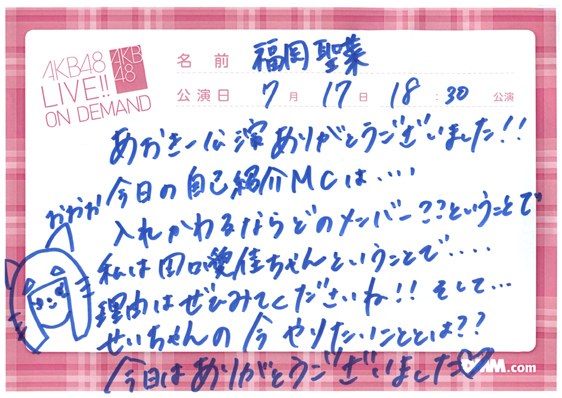 AKB48
LIVE!!
ON DEMAND
AKB
48
名前 福岡聖菜
公演日 7月17日 18:30 公演
あおきー公演ありがとうございました!!
今日の自己紹介MCは....
がおがお
入れかわるならどのメンバー??ということで
私は田口愛佳ちゃんということで....
理由はぜひみてくださいね!! そして...
せいちゃんの今やりたいこととは??
今日はありがとうございました♡
.com